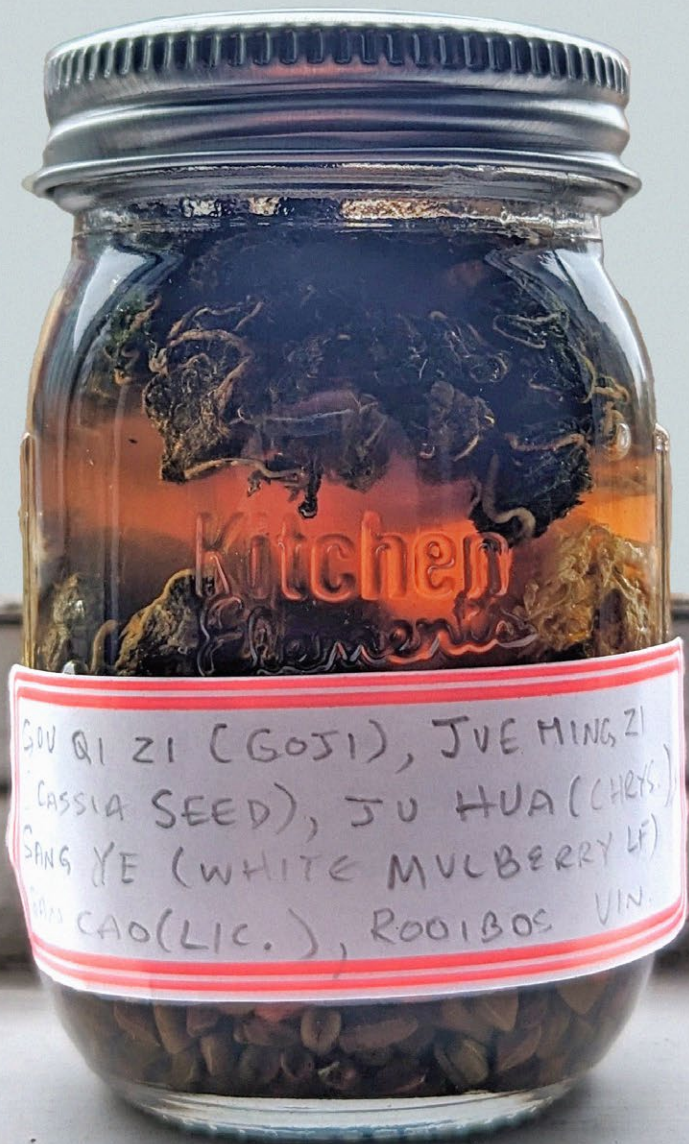 Kitchen
Elements
GOU QI ZI (GOJI), JUE MING ZI
(CASSIA SEED), JU HUA (CHRYS.),
SANG YE (WHITE MULBERRY LF)
CAO (LIC.), ROOIBOS VIN.